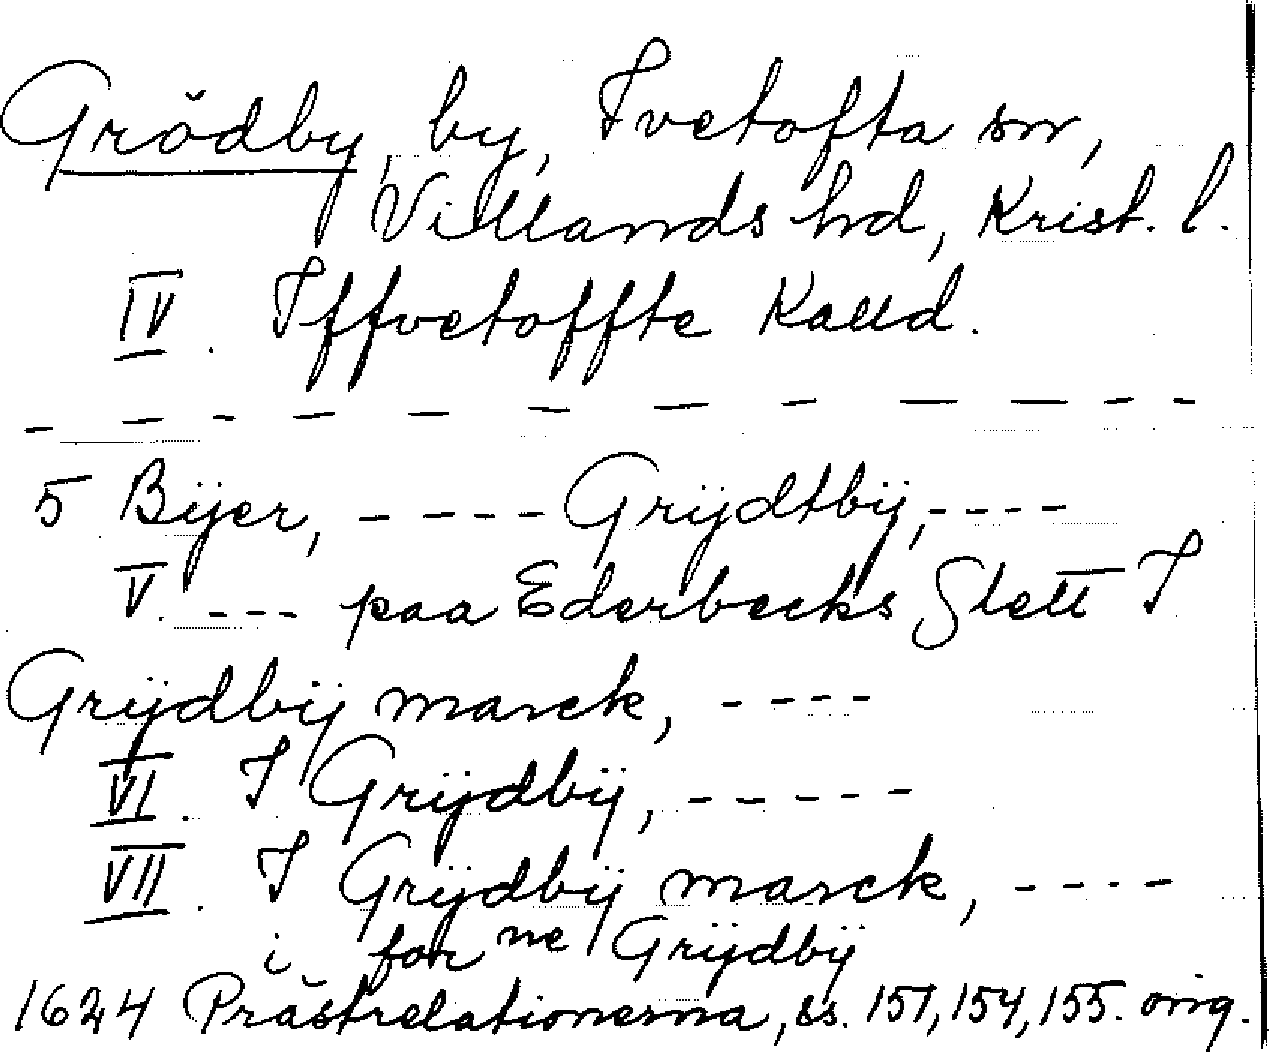 Grödby by, Ivetofta sn,
Villands hd, Krist. l.
IV. Iffvetoffte Kalld.
- - - - - - - - - - - -
5 Bÿer, - - - - Grÿdtbÿ, - - - -
V. - - - paa Ederbecks Slett I
Grÿdbÿ marck, - - - -
VI. I Grÿdbÿ, - - - - -
VII. I Grÿdbÿ marck, - - - -
i for ne Grÿdbÿ
1624 Prästrelationerna, ss. 151, 154, 155. orig.